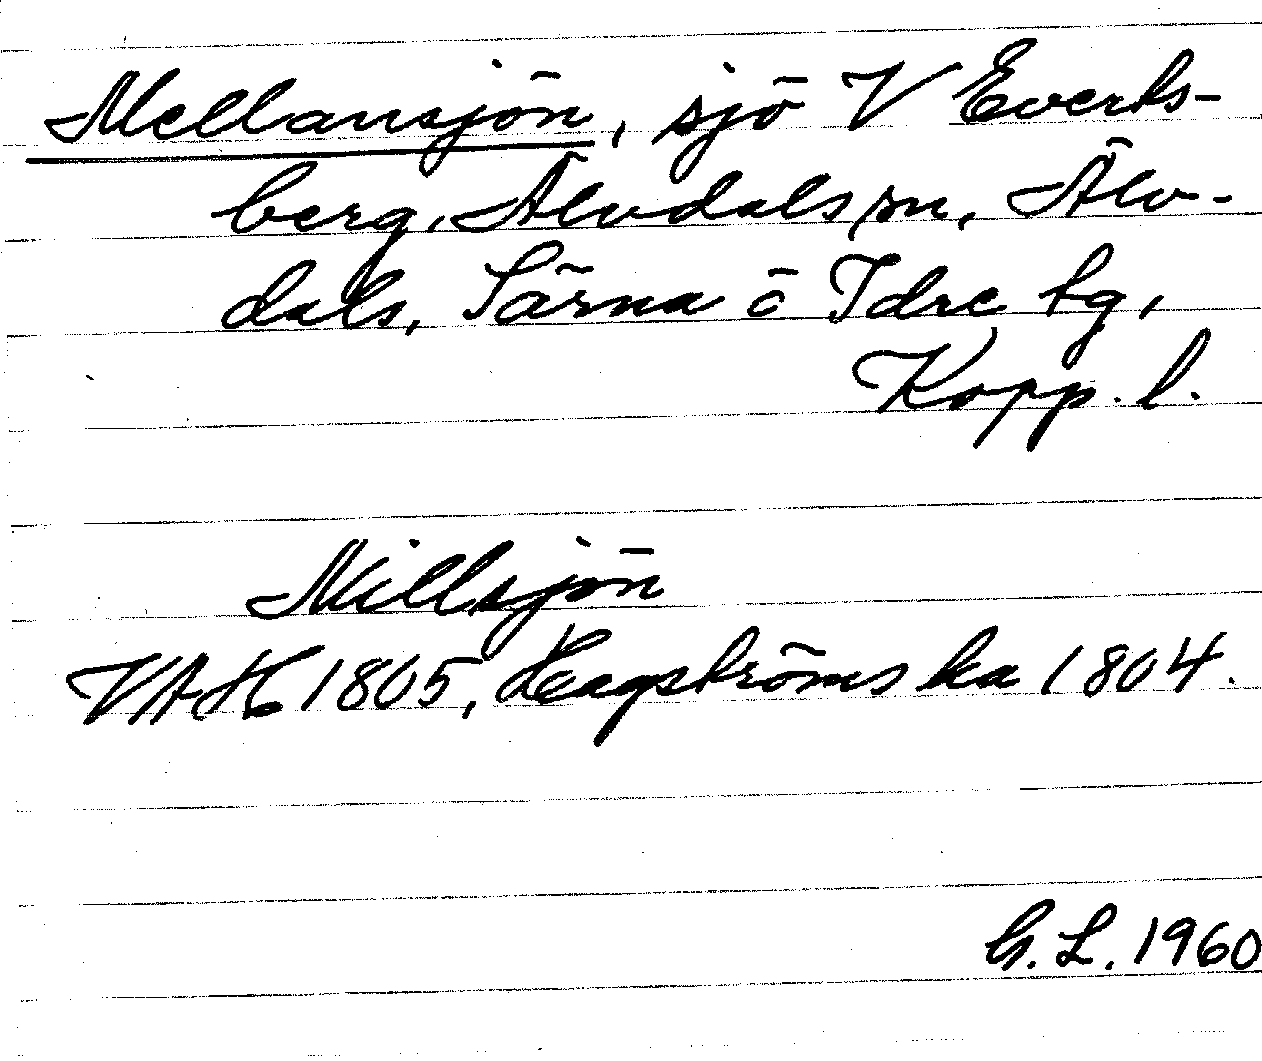 Mellansjön, sjö V Everts-
berg, Älvdals sn, Älv-
dals, Särna o Idre tg,
Kopp. l.
Millsjön
VAH 1805, Hagströmska 1804.
G. L. 1960